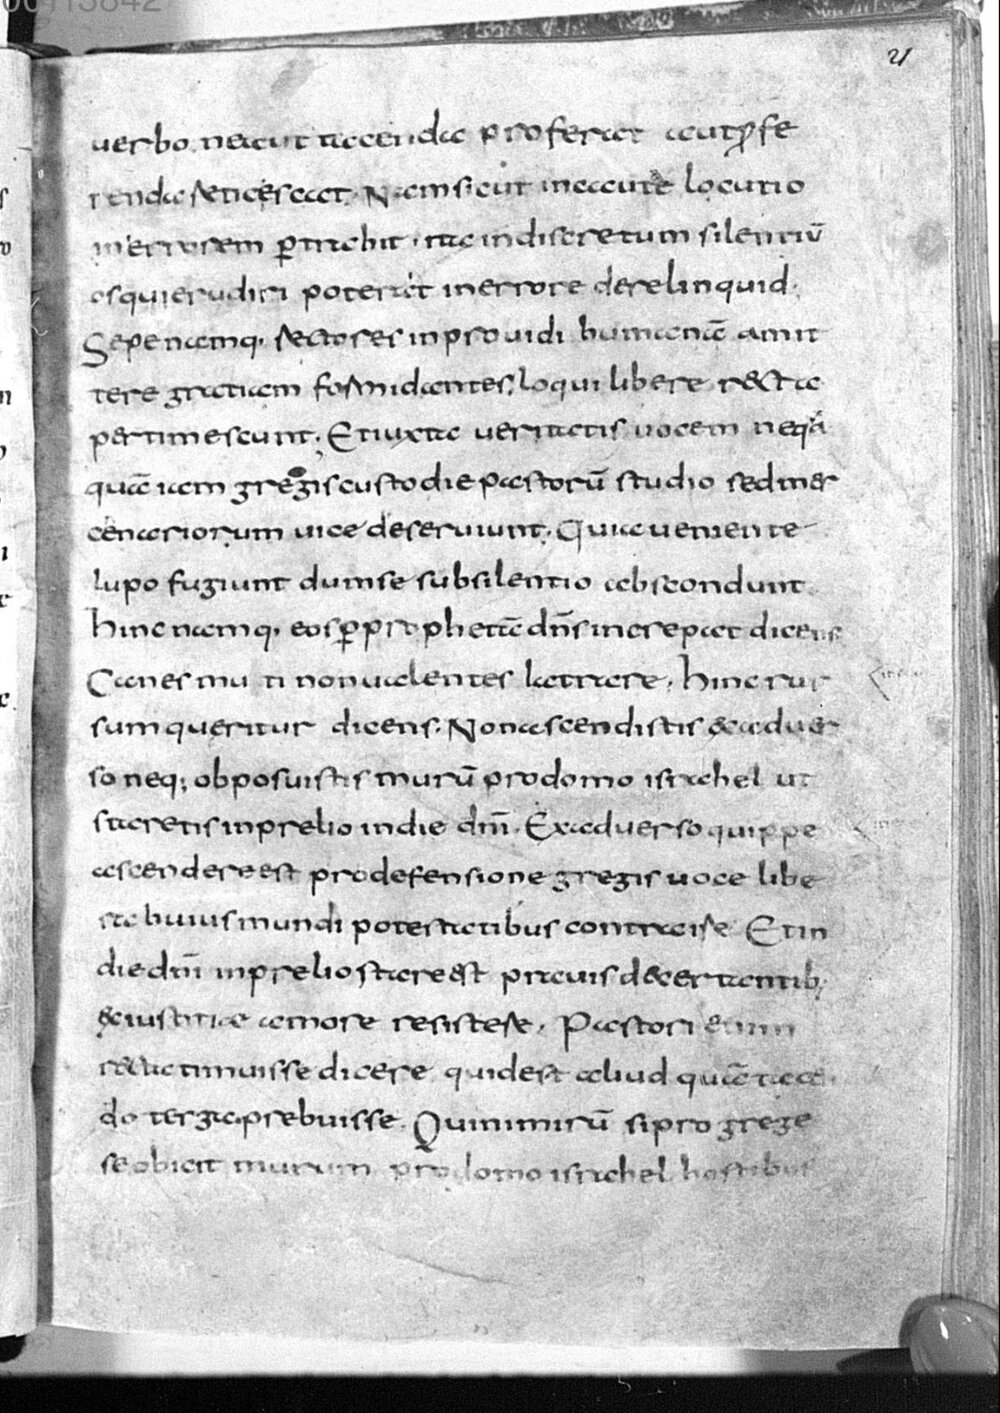 21
uerbo. neaut tacenda proferat aut ꝓfe
renda reticescat. Nam sicut incaute locutio
in errorem ꝑtrahit. ita indiscretum silentiū
os qui erudiri poterat in errore derelinquid.
Sepe namq; rectores inprouidi humanā amit
tere gratiam formidantes, loqui libere recta
pertimescunt. Et iuxta ueritatis uocem neqa
quā iam gregis custodie pastorū studio sed mer
cenariorum uice deseruiunt. Quia ueniente
lupo fugiunt dum se sub silentio abscondunt
hinc namq; eos ꝑ prophetā dn̄s increpat dicens
Canes muti non ualentes latrare. hinc rur
sum queritur dicens. Non ascendistis ex aduer
so neq; obposuistis murū pro domo israhel ut
staretis in prelio in die dm̄i. Ex aduerso quippe
ascendere est pro defensione gregis uoce libe
ra huius mundi potestatibus contraire Et in
die dm̄i in prelio stare est prauis decertantib;
ex iustitiae amore resistere. Pastori enim
recta timuisse dicere quid est aliud quā tacen
do terga prebuisse. Qui nimirū si pro grege
se obicit murum pro domo israhel hostibus